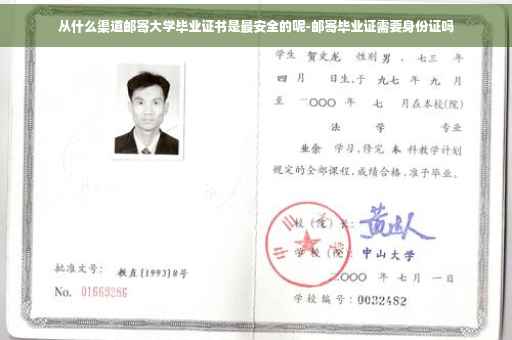 从什么渠道邮寄大学毕业证书是最安全的呢-邮寄毕业证需要身份证吗
学生 贺文龙 性别 男 、七三 年
四 月 日生,于 九七 年 九 月
至 二〇〇〇 年 七 月在本校(院)
法 学 专业
业余 学习,修完 本 科教学计划
规定的全部课程,成绩合格,准予毕业。
校(院)长:
学 校(院): 中山大学
二〇〇〇 年 七 月 一 日
批准文号: 教直[1993]8号
No. 01669286
学校编号: 0032482